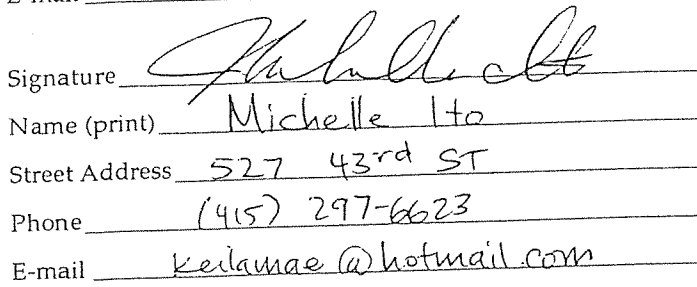 E-mail
Signature
Name (print) Michelle Ito
Street Address 527 43rd ST
Phone (415) 297-6623
E-mail keilamae@hotmail.com